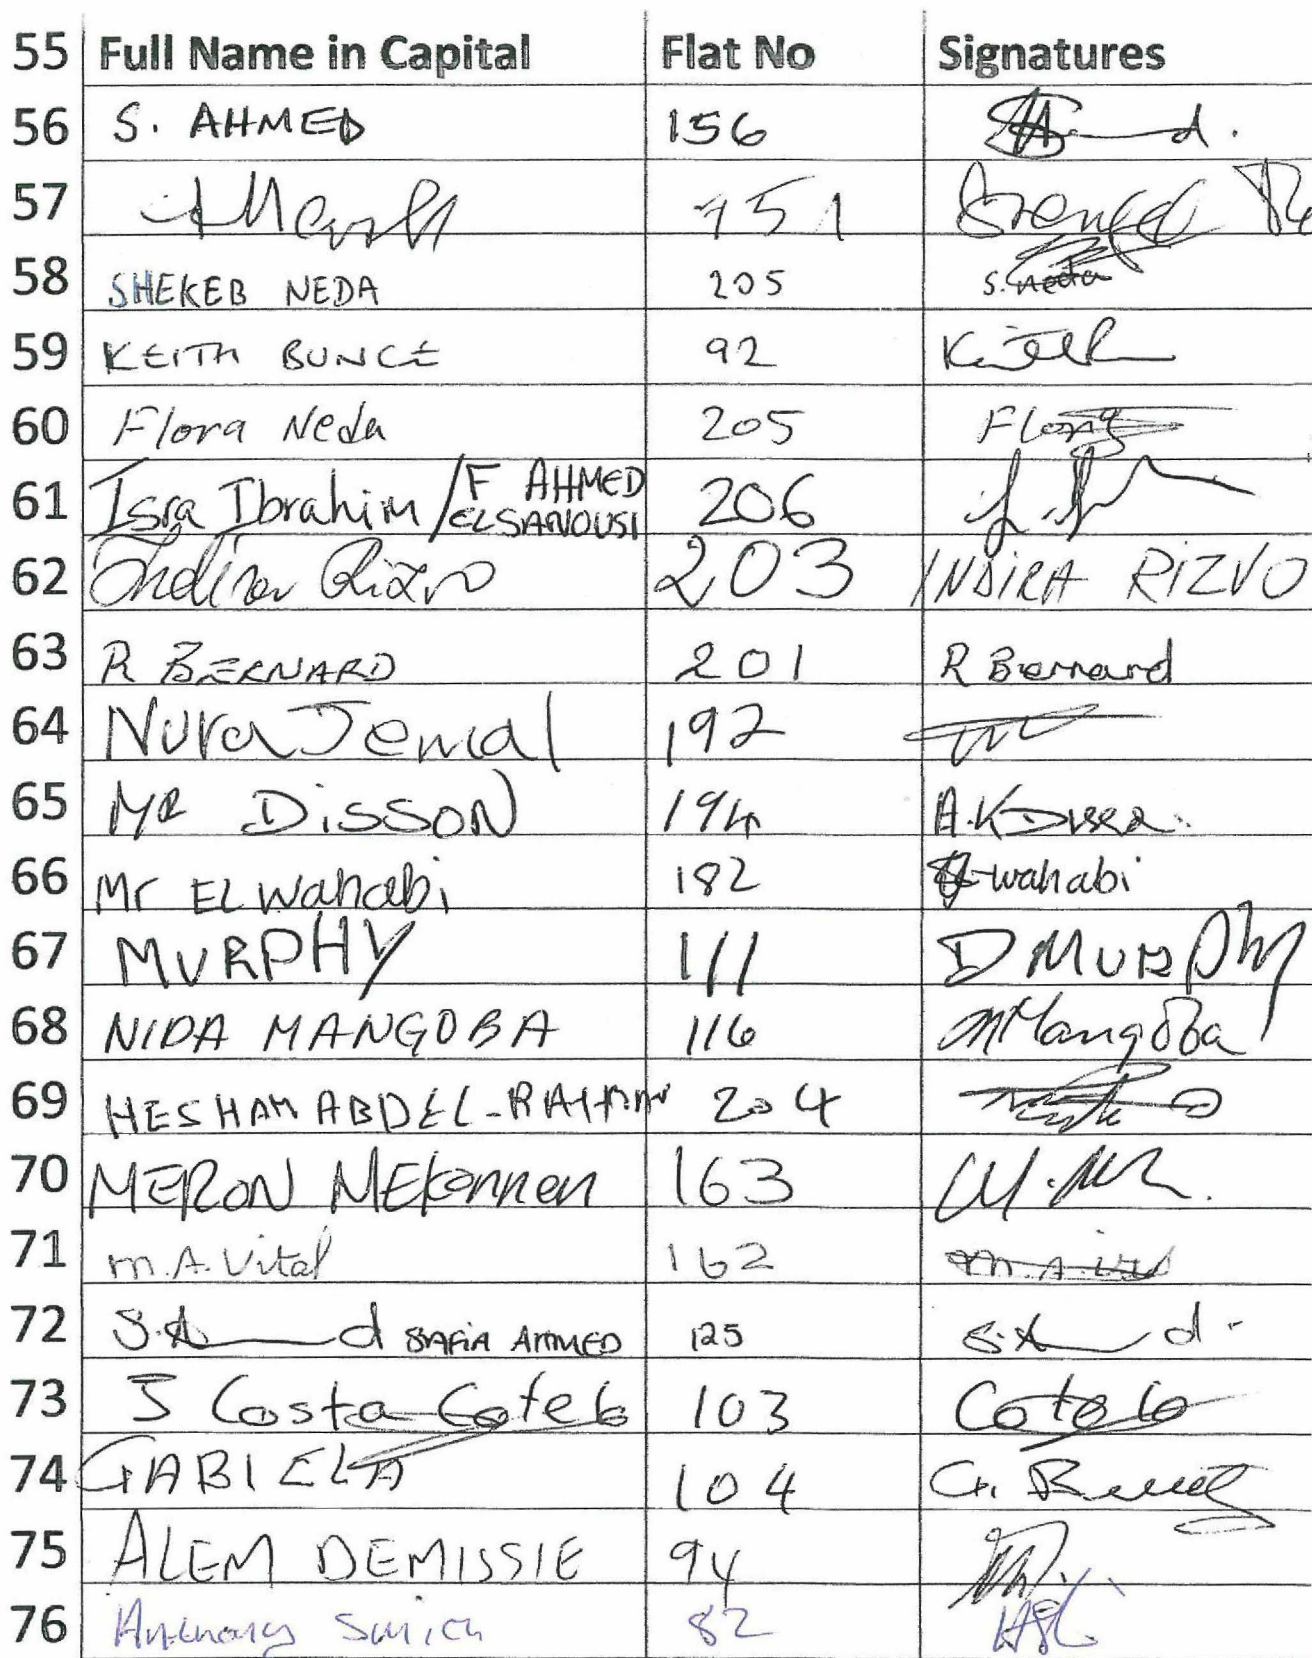 55 Full Name in Capital Flat No Signatures
56 S. AHMED 156
57 151
58 SHEKEB NEDA 205 S. neda
59 KEITH BUNCE 92
60 Flora Neda 205 Flora
61 Isra Ibrahim / F AHMED ELSANOUSI 206
62 Indira Rizvo 203 INDIRA RIZVO
63 R BERNARD 201 R Bernard
64 Nura Jemal 192
65 MR DISSON 194
66 Mr EL Wahabi 182 wahabi
67 MURPHY 111 D MURPhy
68 NIDA MANGOBA 116 Mangoba
69 HESHAM ABDEL-RAHMAN 204
70 MERON MEkonnen 163
71 m.A. Vital 162
72 SAFIA AHMED 125
73 J Costa Cotelo 103 Cotelo
74 GABIELA 104
75 ALEM DEMISSIE 94
76 Anthony Smith 82